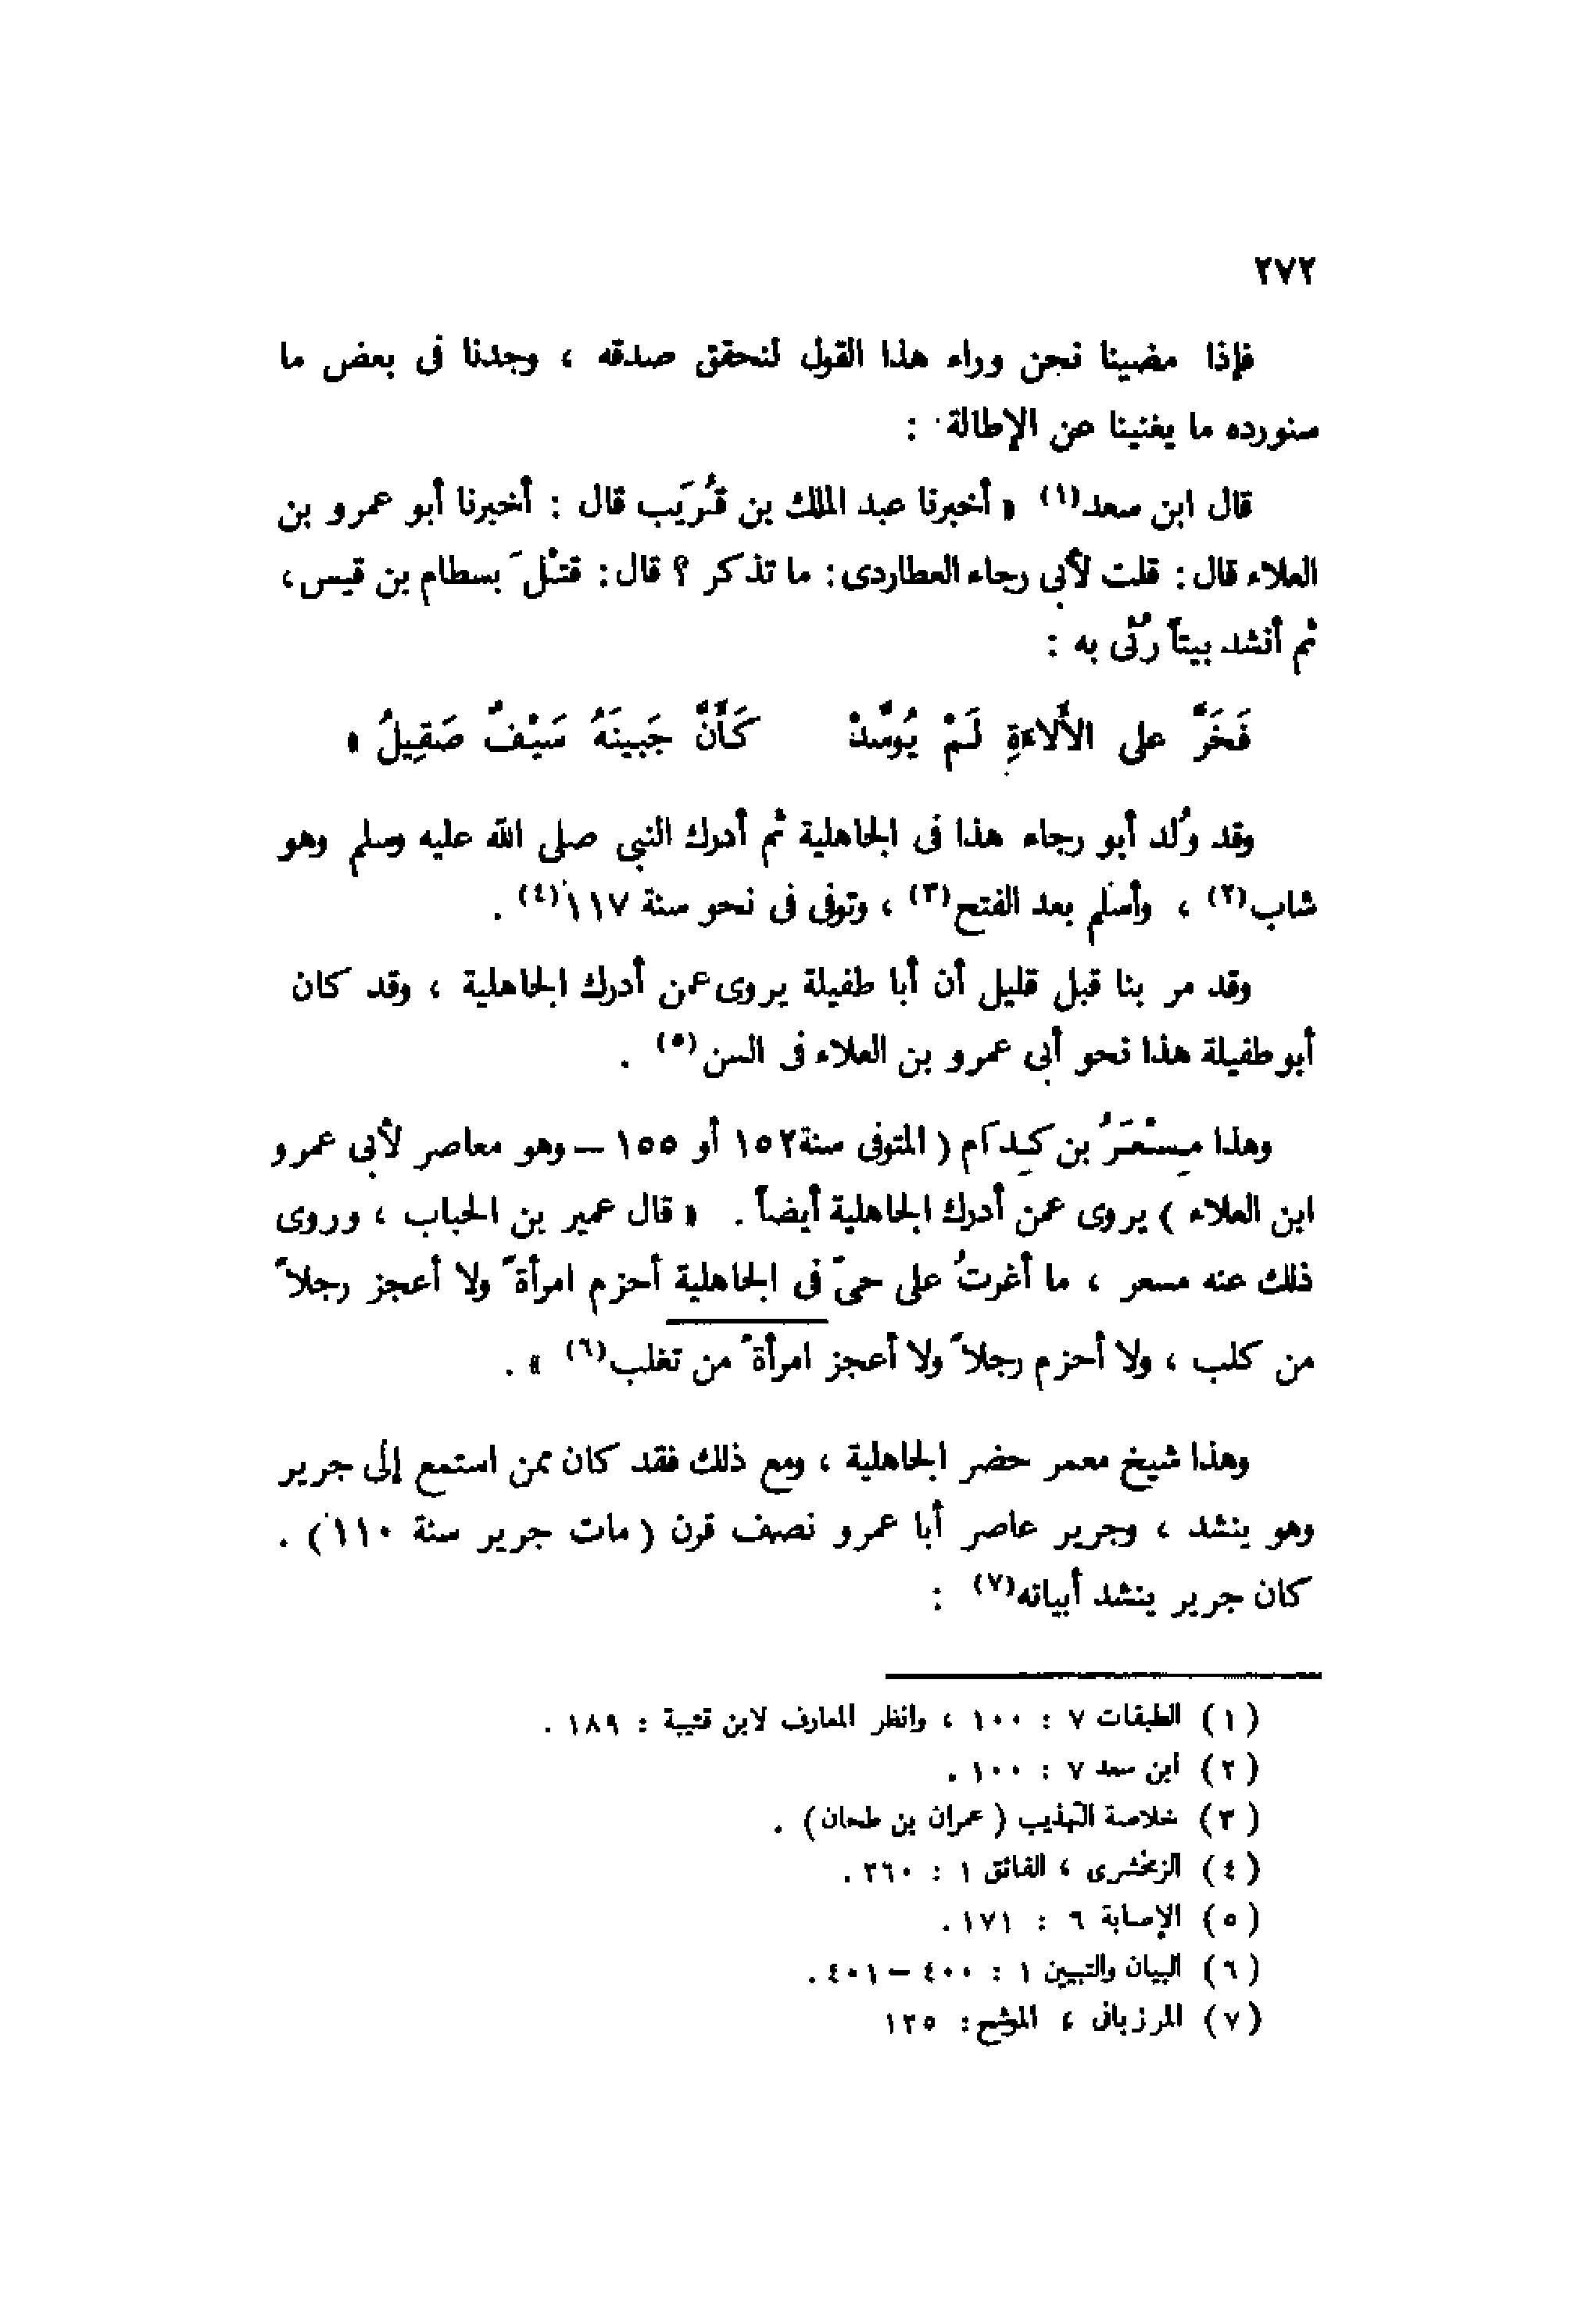 ٢٧٢
فإذا مضينا نحن وراء هذا القول لنحقق صدقه ، وجدنا فى بعض ما
سنورده ما يغنينا عن الإطالة :
قال ابن سعد(١) « أخبرنا عبد الملك بن قُرَيب قال : أخبرنا أبو عمرو بن
العلاء قال : قلت لأبى رجاء العطاردى : ما تذكر ؟ قال : قتْلَ بسطام بن قيس ،
ثم أنشد بيتاً رُثى به :
فَخَرَّ على الأَلاءَةِ لَمْ يُوَسَّدْ كَأَنَّ جَبِينَهُ سَيْفٌ صَقِيلُ »
وقد وُلد أبو رجاء هذا فى الجاهلية ثم أدرك النبى صلى الله عليه وسلم وهو
شاب(٢) ، وأسلم بعد الفتح(٣) ، وتوفى فى نحو سنة ١١٧(٤) .
وقد مر بنا قبل قليل أن أبا طفيلة يروى عمن أدرك الجاهلية ، وقد كان
أبو طفيلة هذا نحو أبى عمرو بن العلاء فى السن(٥) .
وهذا مِسْعَرُ بن كِدَام ( المتوفى سنة ١٥٢ أو ١٥٥ – وهو معاصر لأبى عمرو
ابن العلاء ) يروى عمن أدرك الجاهلية أيضاً . « قال عمير بن الحباب ، وروى
ذلك عنه مسعر ، ما أغرتُ على حىّ فى الجاهلية أحزم امرأةً ولا أعجز رجلاً
من كلب ، ولا أحزم رجلاً ولا أعجز امرأةً من تغلب(٦) » .
وهذا شيخ معمر حضر الجاهلية ، ومع ذلك فقد كان ممن استمع إلى جرير
وهو ينشد ، وجرير عاصر أبا عمرو نصف قرن ( مات جرير سنة ١١٠ ) .
كان جرير ينشد أبياته(٧) :
( ١ ) الطبقات ٧ : ١٠٠ ، وانظر المعارف لابن قتيبة : ١٨٩ .
( ٢ ) ابن سعد ٧ : ١٠٠ .
( ٣ ) خلاصة التهذيب ( عمران بن طحان ) .
( ٤ ) الزمخشرى ، الفائق ١ : ٢٦٠ .
( ٥ ) الإصابة ٦ : ١٧١ .
( ٦ ) البيان والتبيين ١ : ٤٠٠ – ٤٠١ .
( ٧ ) المرزبانى ، الموشح : ١٢٥